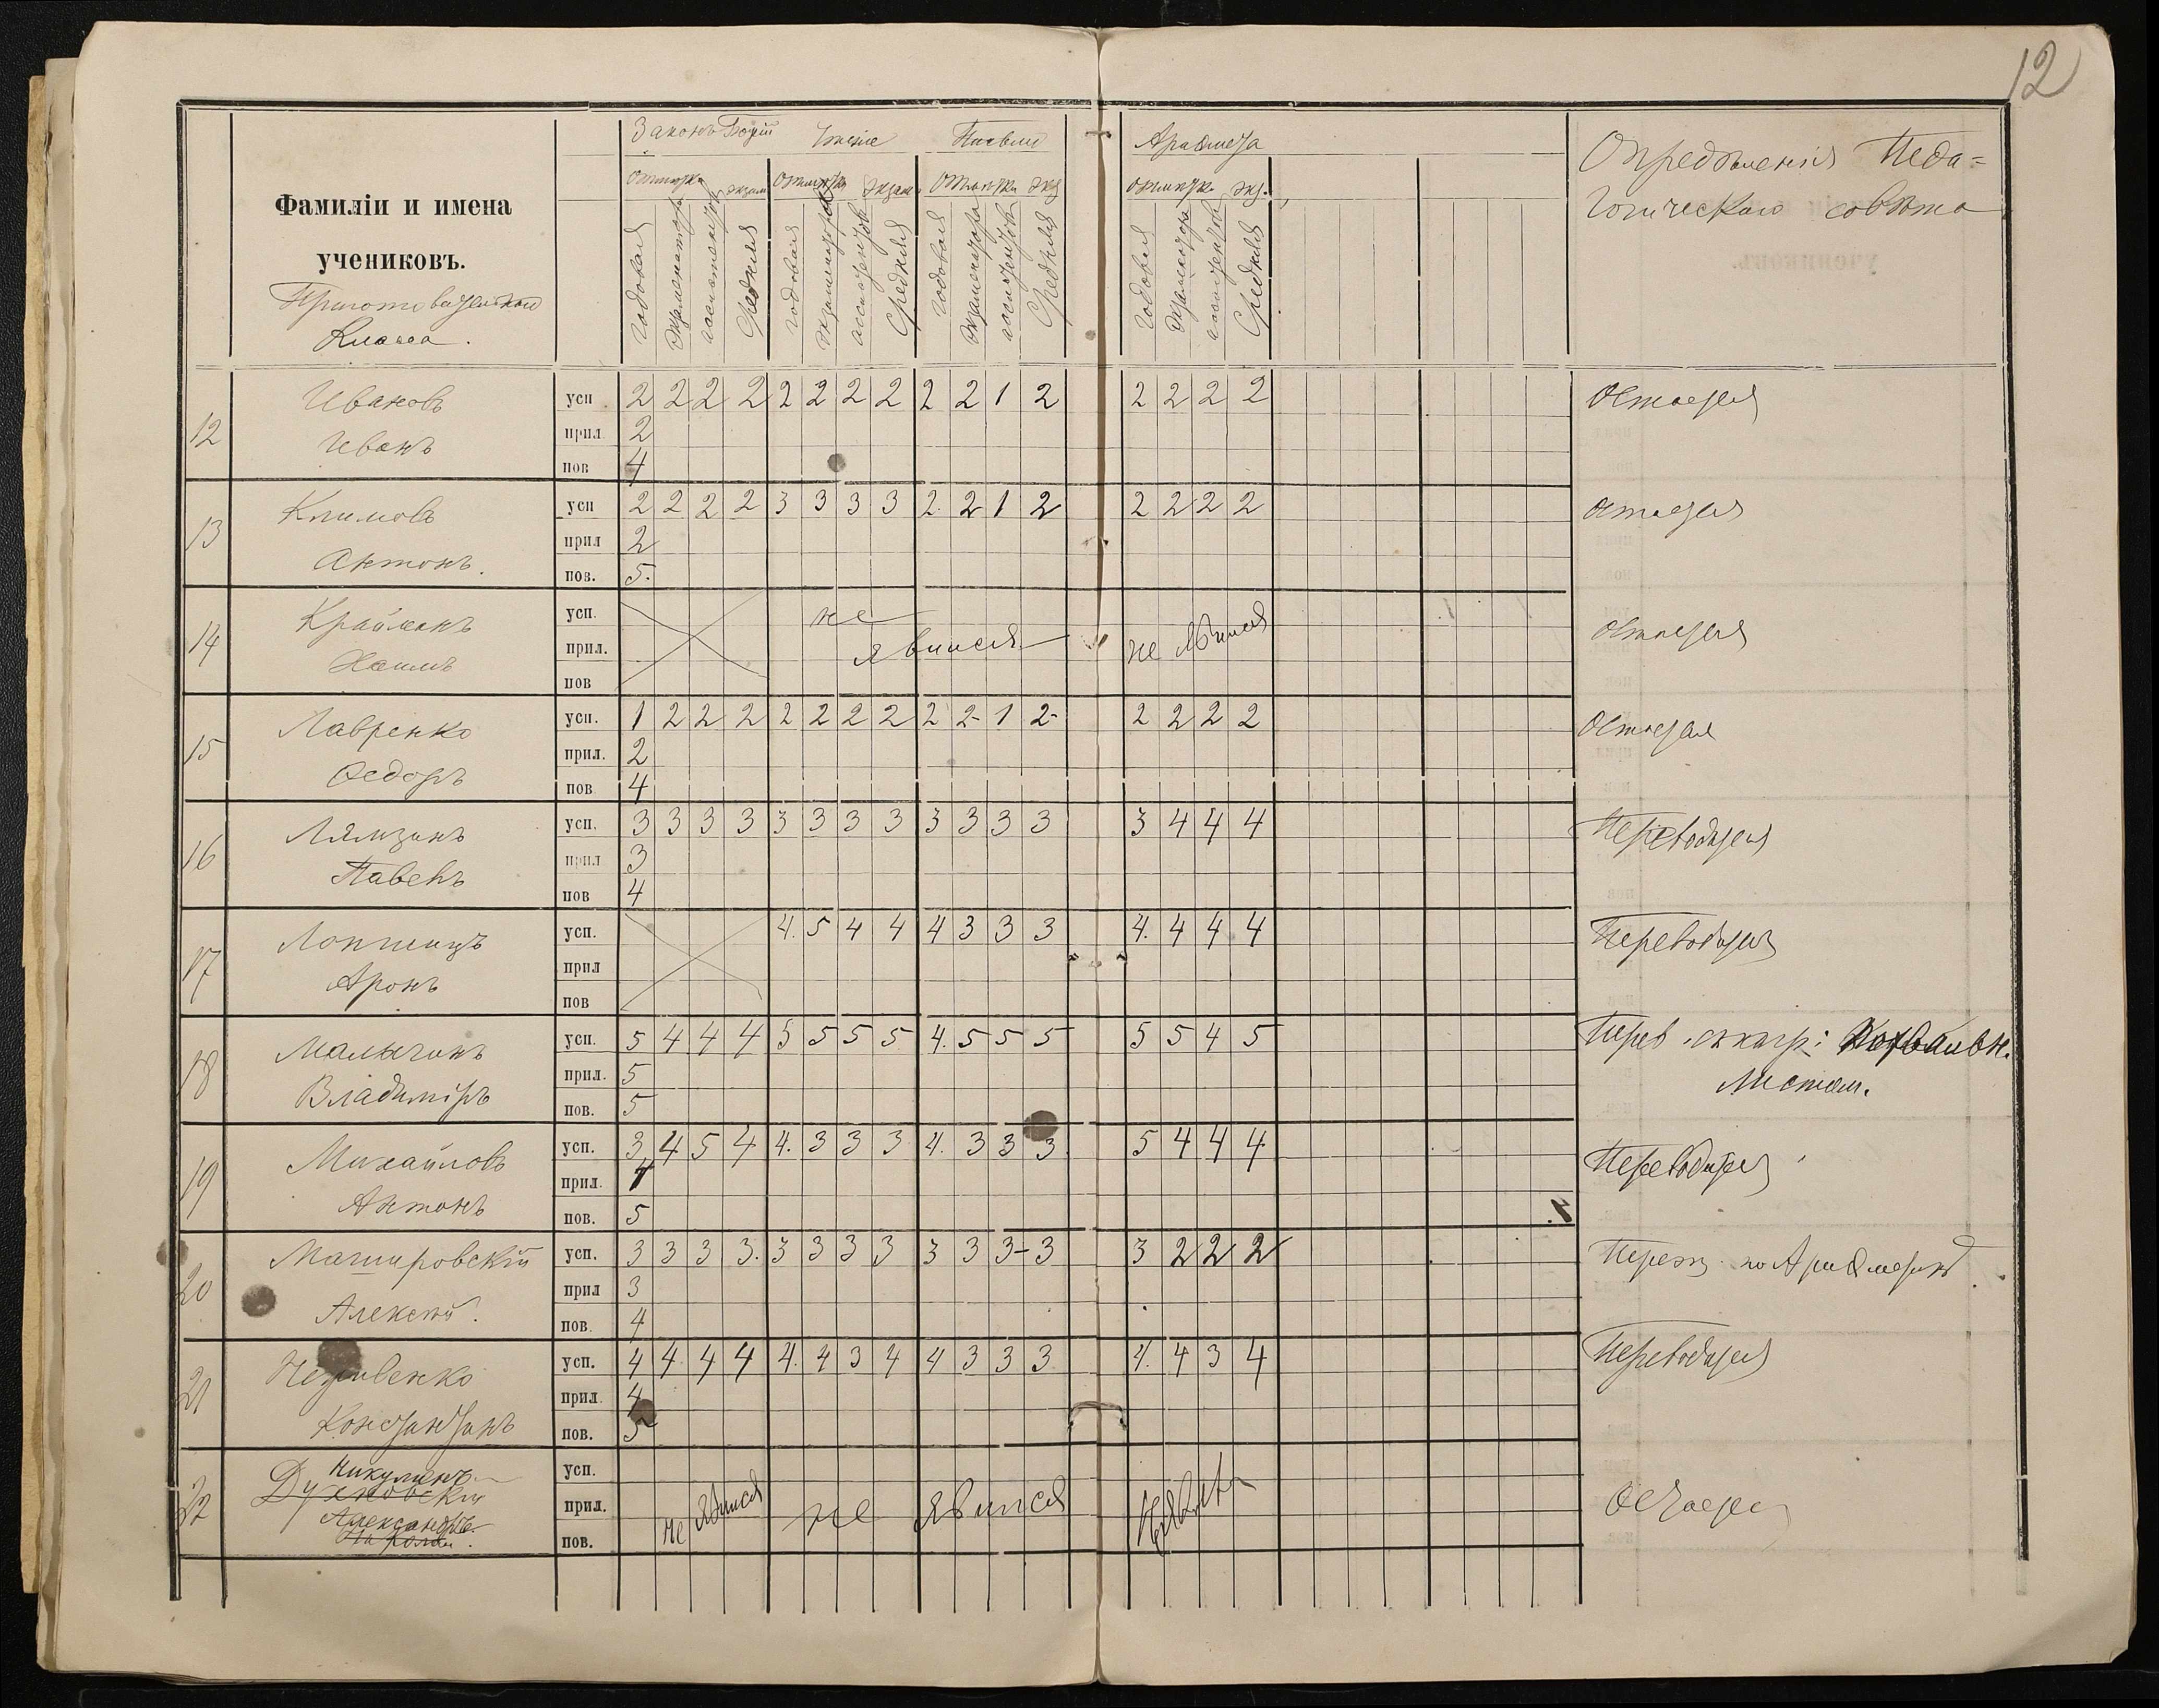 12
Фамиліи и имена
учениковъ.
Приготовительнаго
Класса.
Законъ Божій Чтеніе Письмо Ариѳмета
отметка экзам отметка экзам отметка экз отметка экз.
Годовая экзаменатора ассистентов Средняя годовая экзаменаторов ассистентов Средняя годовая экзаменатора ассистентов Средняя годовая экзаменатора ассистентов Средняя
Опредѣленія Педа=
гогическаго совѣта
12 Ивановъ усп 2 2 2 2 2 2 2 2 2 2 1 2 2 2 2 2 Остается
Иванъ прил. 2
пов 4
13 Климовъ усп 2 2 2 2 3 3 3 3 2. 2 1 2 2 2 2 2 остается
Антонъ. прил 2
пов. 5.
14 Крайманъ усп. не
Хаимъ прил. явился не явился остается
пов
15 Лавренко усп. 1 2 2 2 2 2 2 2 2 2- 1 2- 2 2 2 2 Остается
Ѳедоръ прил. 2
пов 4
16 Лямзинъ усп. 3 3 3 3 3 3 3 3 3 3 3 3 3 4 4 4 Переводится
Павелъ прил 3
пов 4
17 усп. 4. 5 4 4 4 3 3 3 4. 4 4 4 Переводится
Аронъ прил
пов
18 Малыгинъ усп. 5 4 4 4 5 5 5 5 4. 5 5 5 5 5 4 5 Перев. с нагр: Похвальн.
Владиміръ прил. 5 Листом.
пов. 5
19 Михайловъ усп. 3 4 5 4 4. 3 3 3 4. 3 3 3 5 4 4 4 Переводится
Антонъ прил. 4
пов. 5
20 Машировскій усп. 3 3 3 3. 3 3 3 3 3 3 3- 3 3 2 2 2 по Ариѳметикѣ.
Алексѣй. прил 3
пов. 4
21 усп. 4 4 4 4 4. 4 3 4 4 3 3 3 4. 4 3 4 Переводится
Константинъ прил. 4
пов. 5
22 Никулинъ усп.
прил. не явился не явился Остается
Александръ
пов.